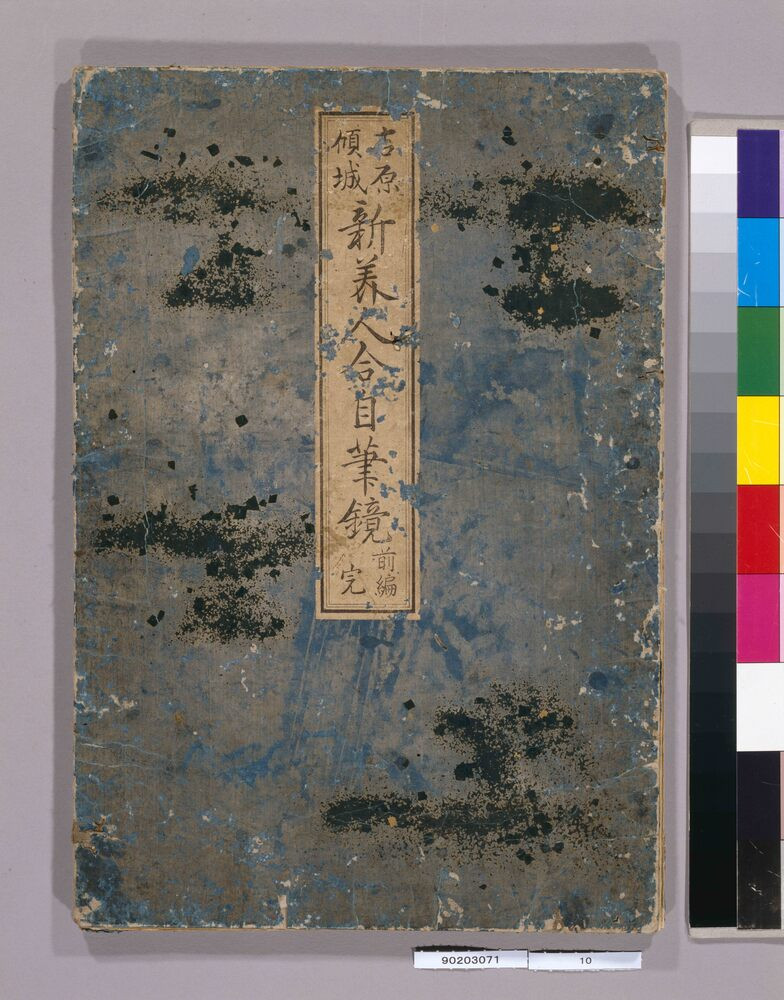 吉原
傾城
新美人合自筆鏡
前編
完
90203071
10